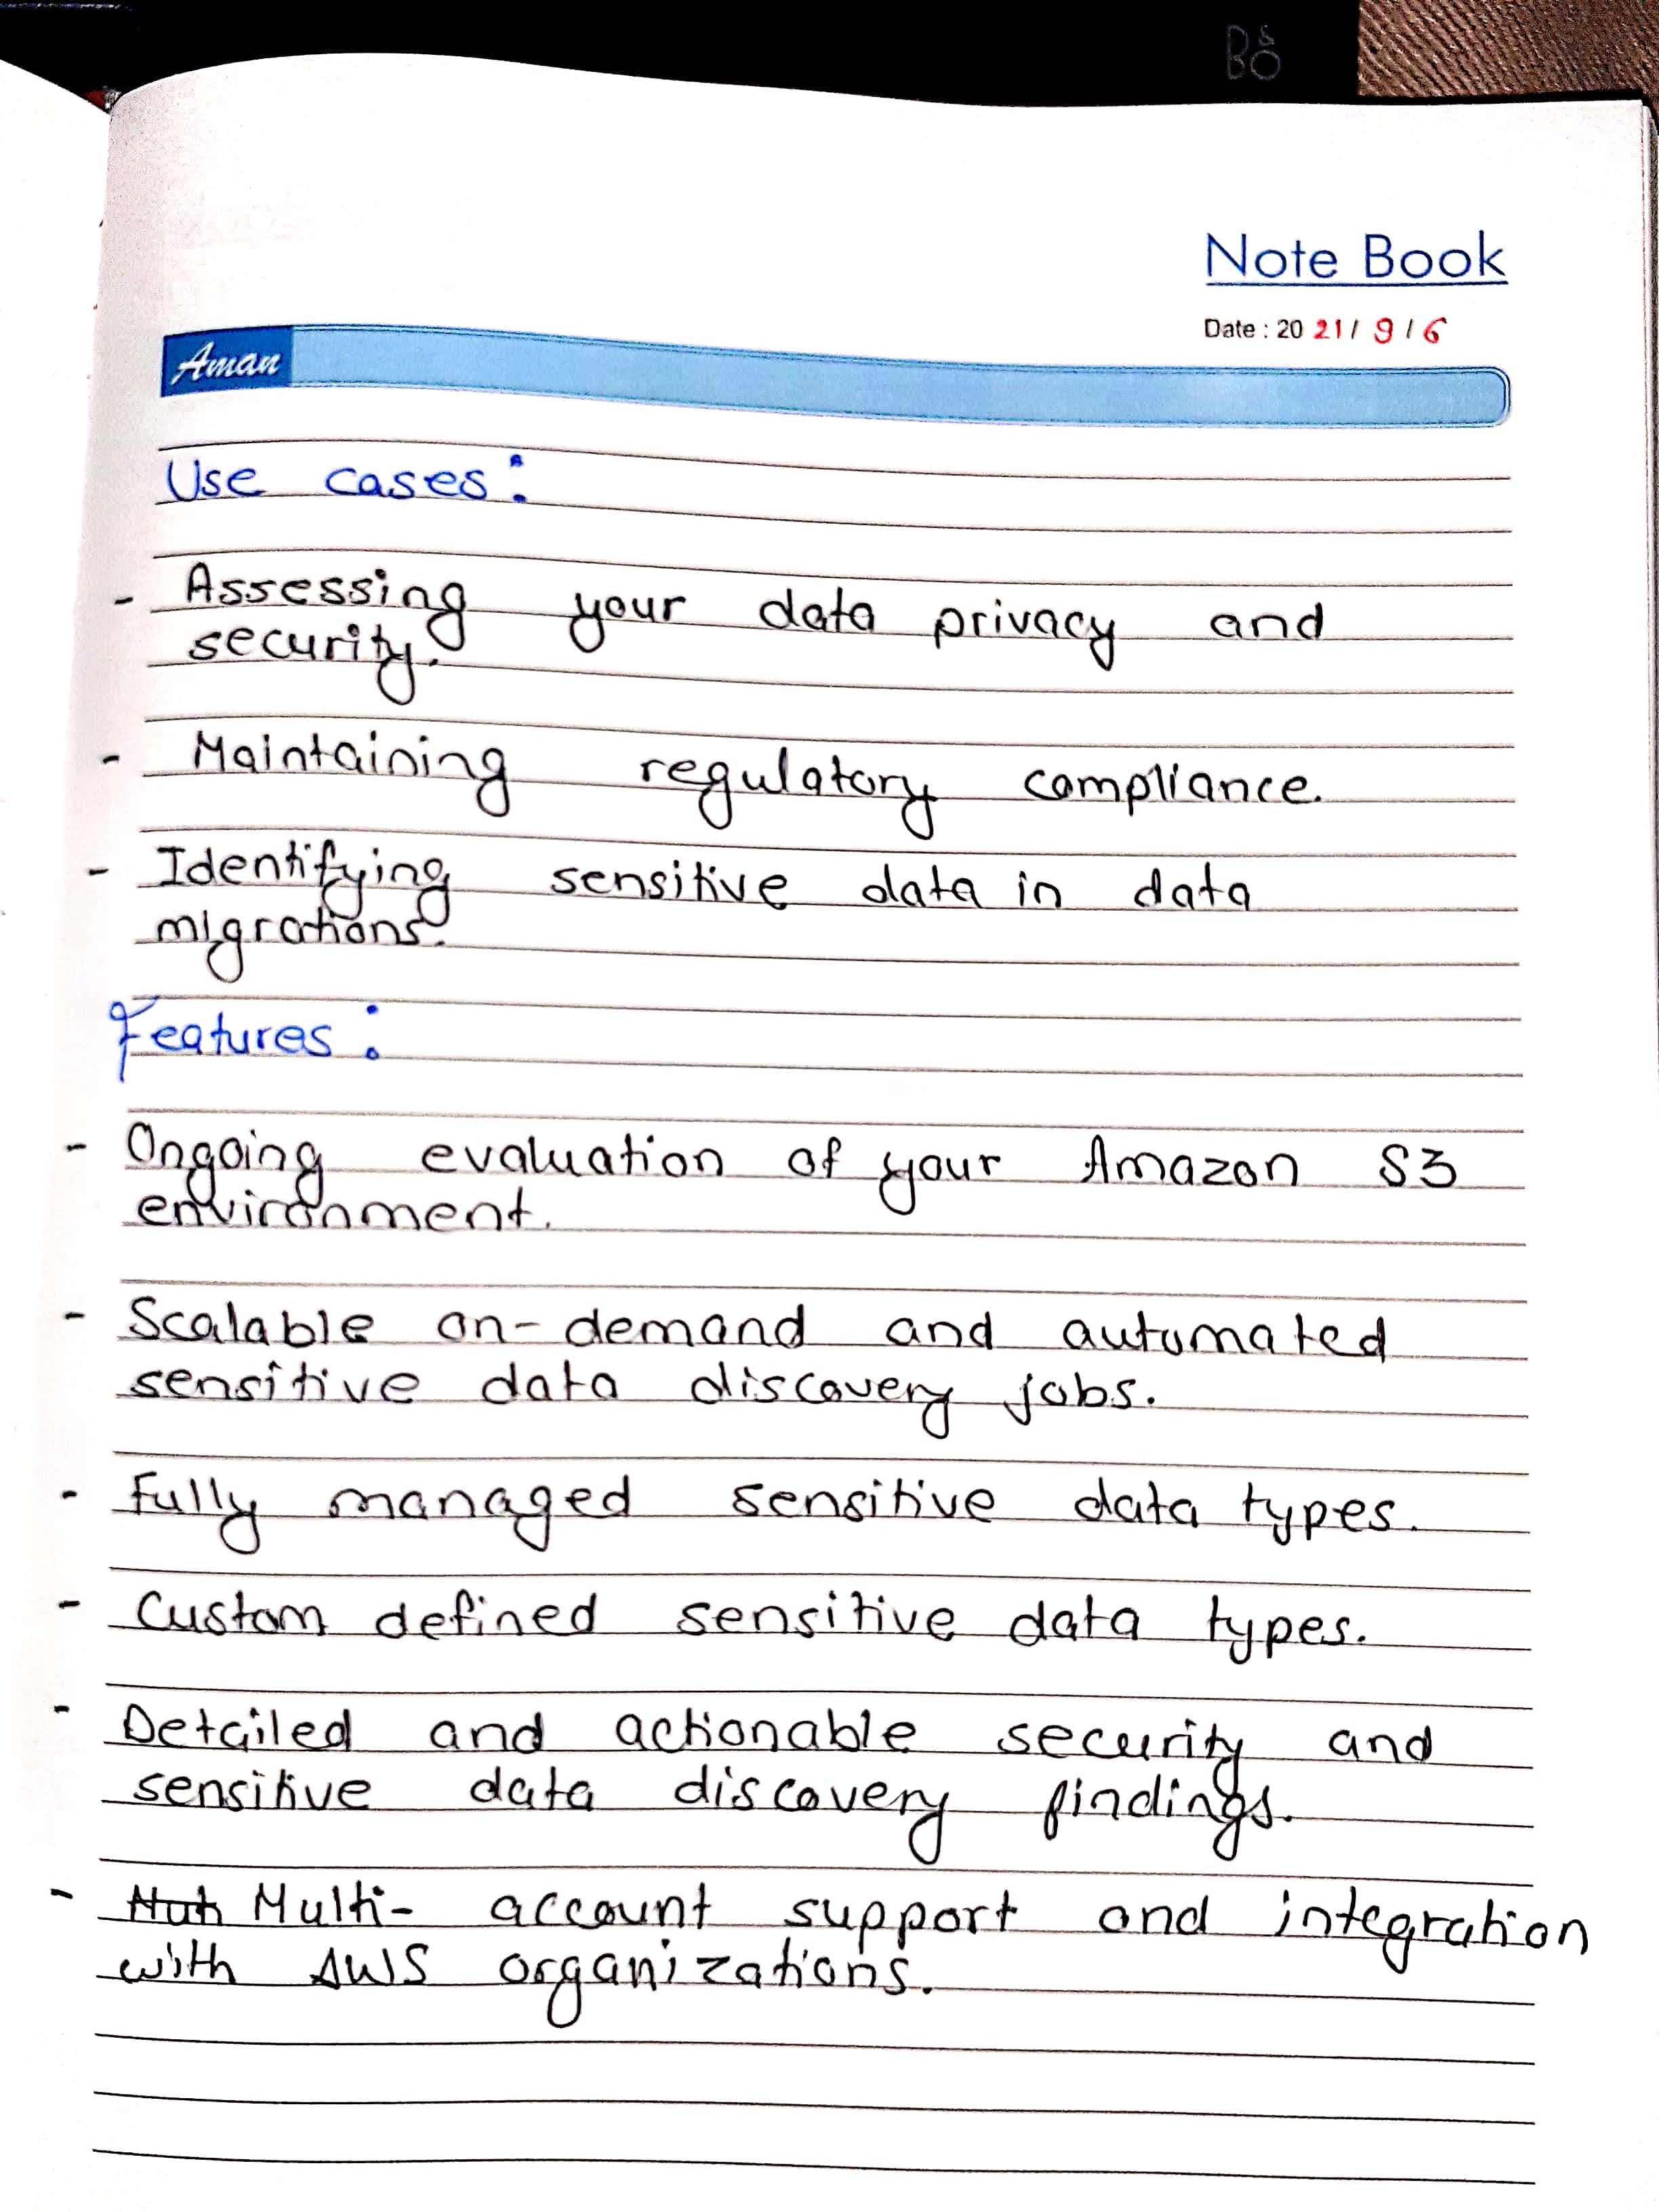 B&O
Note Book
Date : 20 21 / 9 / 6
Aman
Use cases:
- Assessing your data privacy and
security.
- Maintaining regulatory compliance.
- Identifying sensitive data in data
migrations.
Features:
- Ongoing evaluation of your Amazon S3
environment.
- Scalable on-demand and automated
sensitive data discovery jobs.
- Fully managed sensitive data types.
- Custom defined sensitive data types.
- Detailed and actionable security and
sensitive data discovery findings.
- Multi- account support and integration
with AWS organizations.